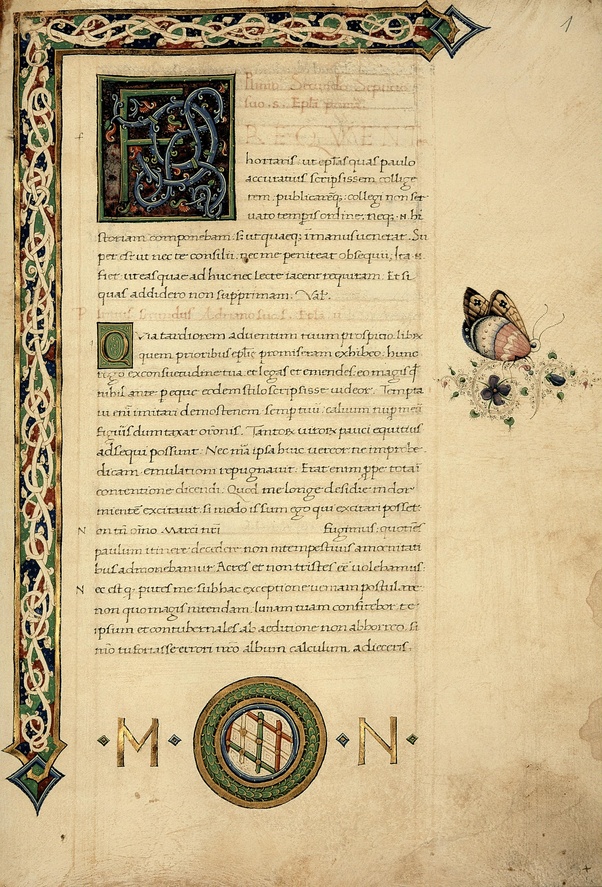 1
Plinius Secundus Septicio
suo. s. Epla prima.
REQVENT
hortaris ut eplas quas paulo
accuratius scripsissem collige
rem publicaremq; collegi non ser
uato temporis ordine: neq; .n. hi
storiam componebam. S; ut quaeq; in manus uenerat. Su
per est ut nec te consilii. nec me peniteat obsequii. Ita .n.
fiet ut eas quae adhuc neclecte iacent requiram. Et si
quas addidero non supprimam. Val'.
Plinius secundus Adriano suo .s. Epla .ii.
Quia tardiorem aduentum tuum prospicio. libru
quem prioribus eplis promiseram exhibeo. hunc
rogo ex consuetudine tua et legas et emendes. eo magis q
nihil ante peque eodem stilo scripsisse uideor. Tempta
ui enim imitari demostenem semp tuum: caluum nup meum
figuris dumtaxat oronis. Tantorum uirorum pauci equitius
adsequi possunt. Nec mia ipsa huic uereor ne improbe
dicam. emulationi repugnauit. Erat enim ppe tota i
contentione dicendi. Quod me longe desidie indor
mientem excitauit. si modo is sum ego qui excitari posset.
N on tn oino Marci nri fugimus. quotiens
paulum itinere decedere non intempestiuis amoenitati
bus admonebamur. Acres eni non tristes ee uolebamus.
N ec est q. putes me sub hac exceptione ueniam postulare
non quo magis intendam limam tuam confitebor et
ipsum et contubernales ab aeditione non abhorreo. si
mo tu fortasse errori nro album calculum adieceris.
M N